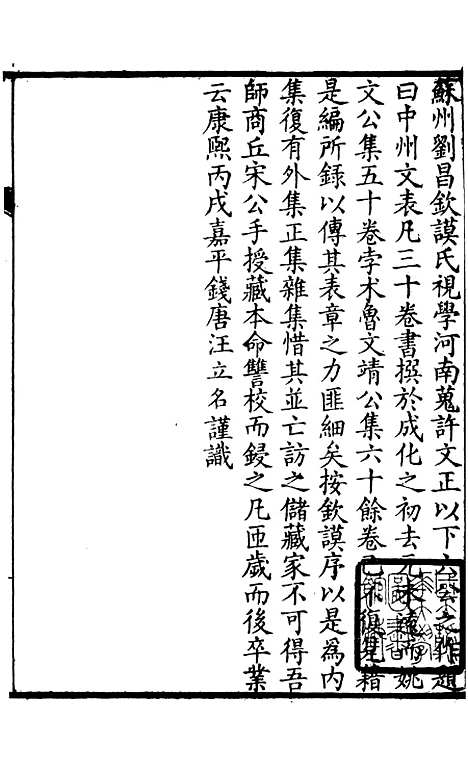 蘇州劉昌欽謨氏視學河南蒐許文正以下六公之作題
曰中州文表凡三十卷書撰於成化之初去元未遠而姚
文公集五十卷孛术魯文靖公集六十餘卷已不復見藉
是編所錄以傳其表章之力匪細矣按欽謨序以是為内
集復有外集正集雜集惜其並亡訪之儲藏家不可得吾
師商丘宋公手授藏本命讐校而鋟之凡匝歲而後卒業
云康熙丙戌嘉平錢唐汪立名謹識